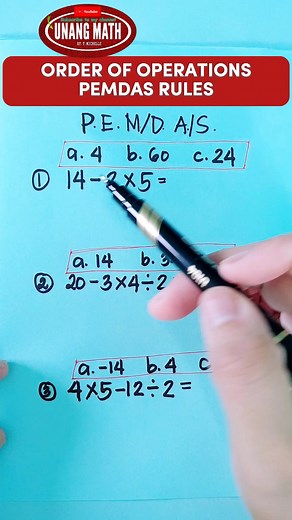 YouTube
Subscribe to my channel
UNANG MATH
BY T.MICHELLE
ORDER OF OPERATIONS
PEMDAS RULES
P. E. M/D. A/S.
a. 4 b. 60 c. 24
① 14 - 2 × 5 =
a. 14 b. 3
② 20 - 3 × 4 ÷ 2
a. -14 b. 4 c
③ 4 × 5 - 12 ÷ 2 =